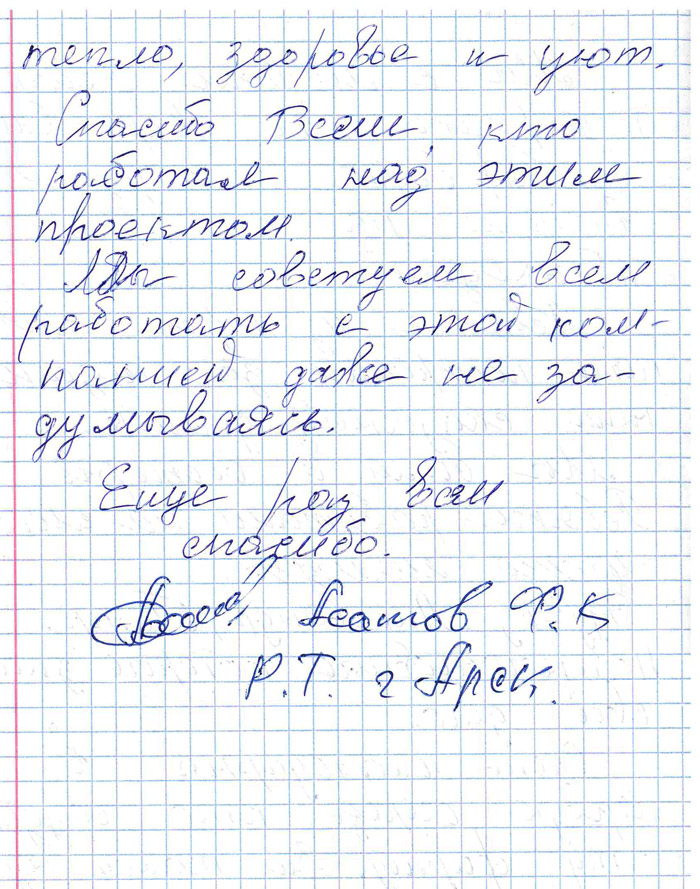 тепло, здоровье и уют.
Спасибо Всем, кто
работал над этим
проектом.
Мы советуем всем
работать с этой ком-
панией даже не за-
думываясь.
Еще раз Вам
спасибо.
Асатов Ф.К
Р.Т. г Арск.